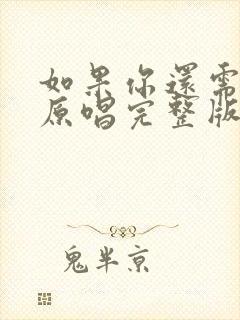 如果你還需
原唱完整版
鬼半京